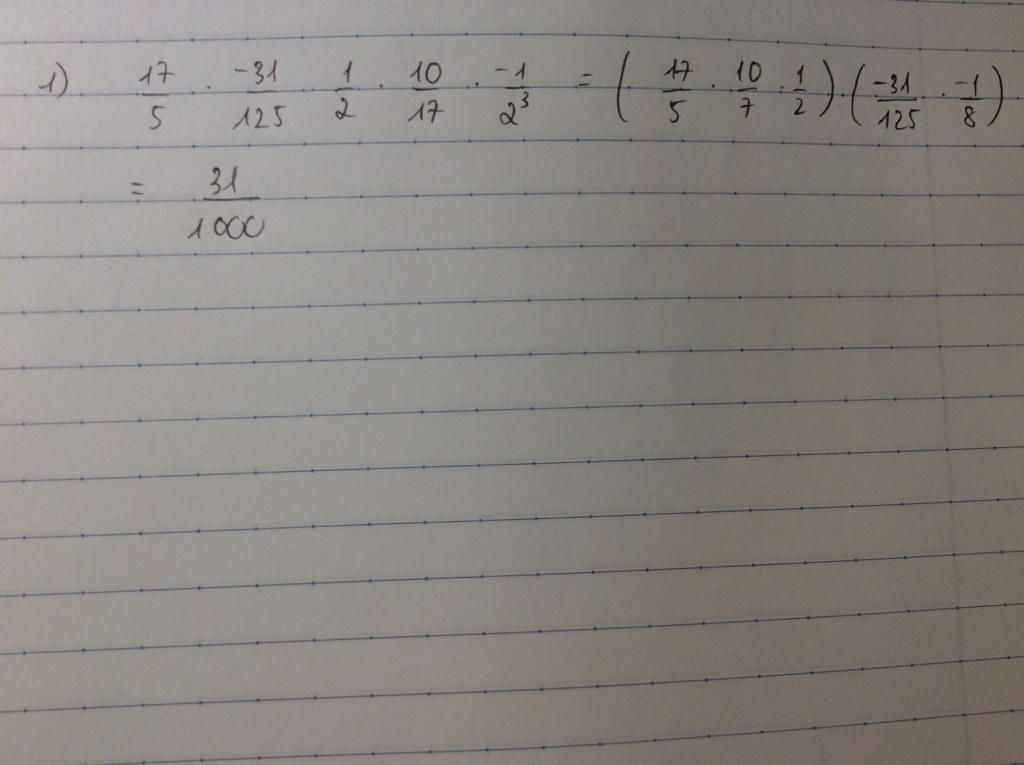 1) 17/5 · -31/125 1/2 · 10/17 · -1/2³ = (17/5 · 10/7 · 1/2) · (-31/125 · -1/8)
= 31/1000